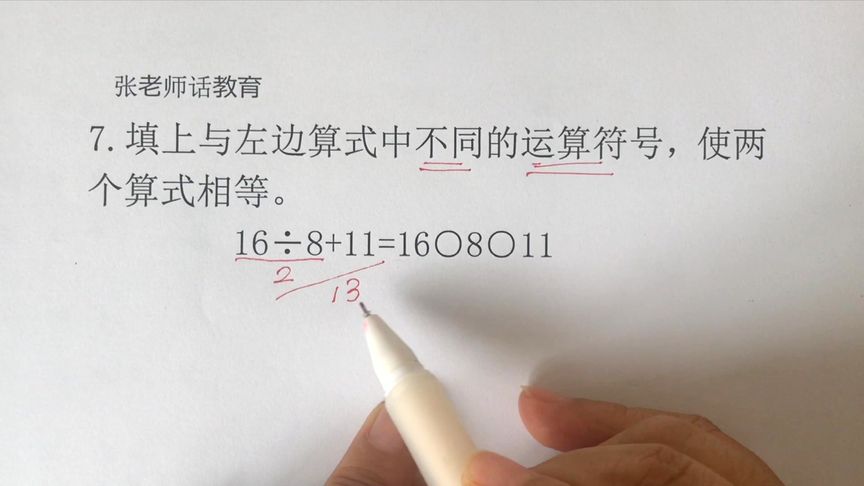 张老师话教育
7. 填上与左边算式中不同的运算符号，使两
个算式相等。
16÷8+11=16○8○11
2
13